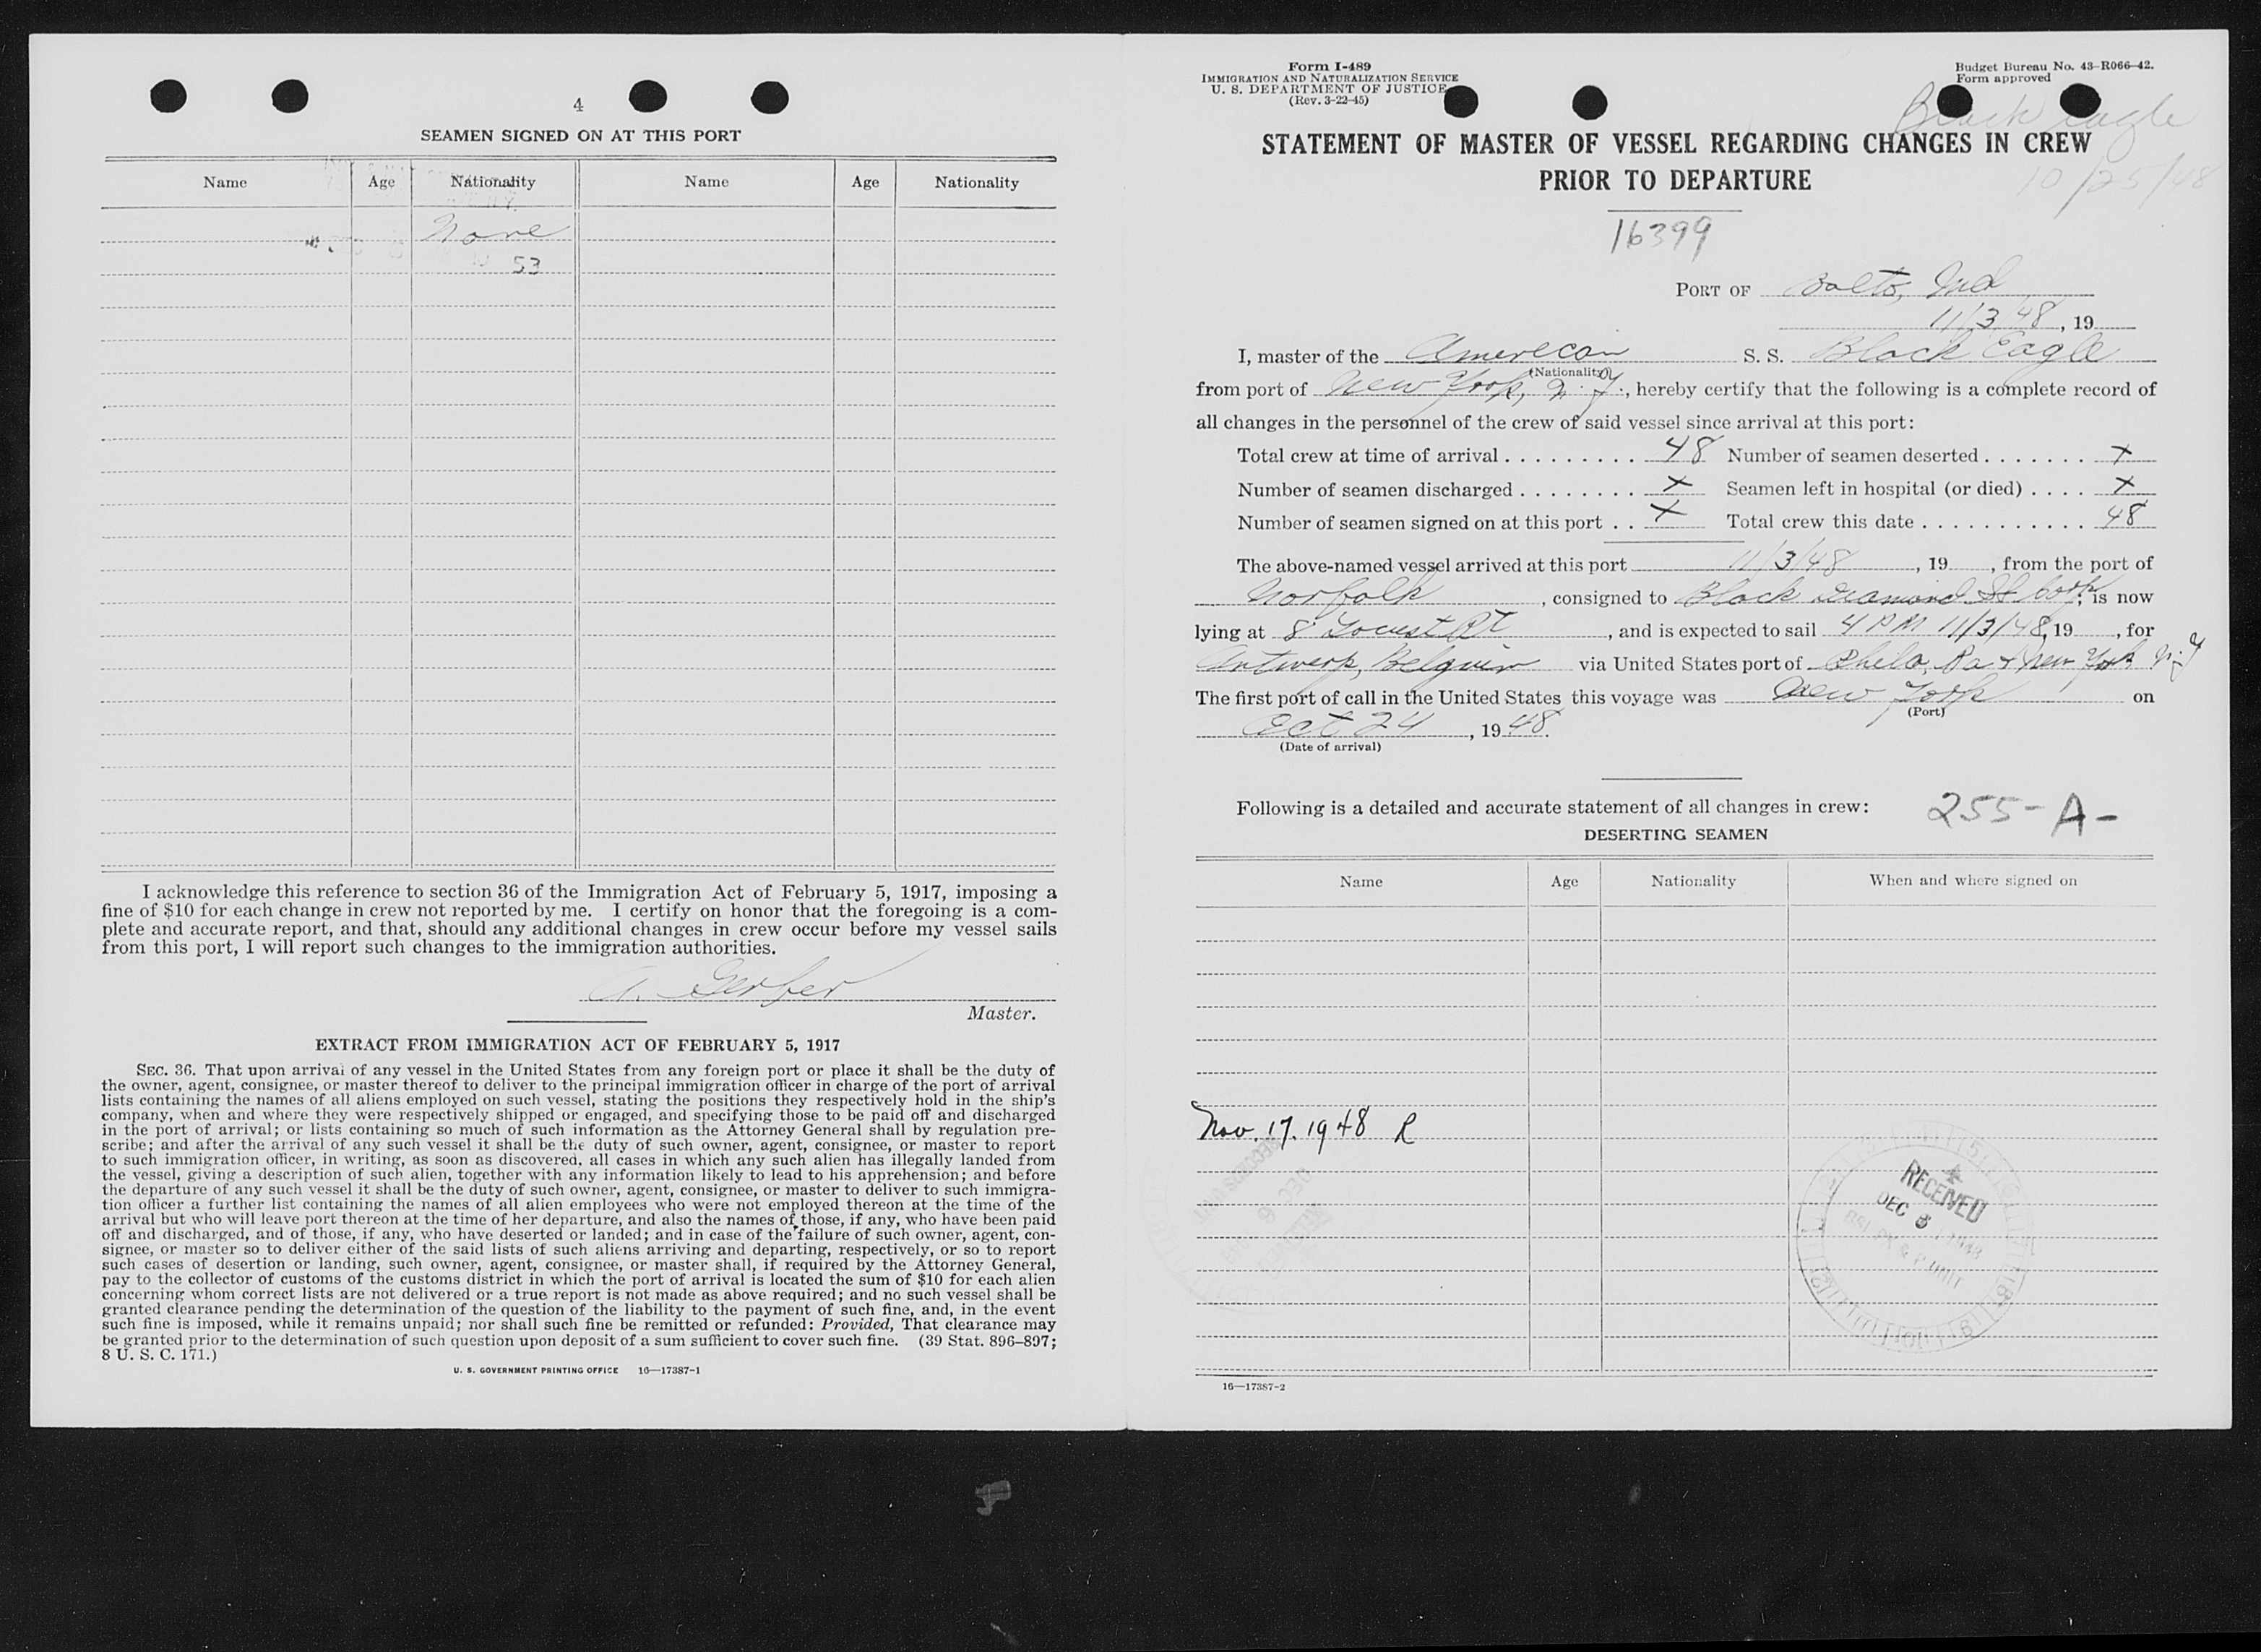 4
SEAMEN SIGNED ON AT THIS PORT
Name Age Nationality Name Age Nationality
None
53
I acknowledge this reference to section 36 of the Immigration Act of February 5, 1917, imposing a
fine of $10 for each change in crew not reported by me. I certify on honor that the foregoing is a com-
plete and accurate report, and that, should any additional changes in crew occur before my vessel sails
from this port, I will report such changes to the immigration authorities.
A. Gerber
Master.
EXTRACT FROM IMMIGRATION ACT OF FEBRUARY 5, 1917
SEC. 36. That upon arrival of any vessel in the United States from any foreign port or place it shall be the duty of
the owner, agent, consignee, or master thereof to deliver to the principal immigration officer in charge of the port of arrival
lists containing the names of all aliens employed on such vessel, stating the positions they respectively hold in the ship's
company, when and where they were respectively shipped or engaged, and specifying those to be paid off and discharged
in the port of arrival; or lists containing so much of such information as the Attorney General shall by regulation pre-
scribe; and after the arrival of any such vessel it shall be the duty of such owner, agent, consignee, or master to report
to such immigration officer, in writing, as soon as discovered, all cases in which any such alien has illegally landed from
the vessel, giving a description of such alien, together with any information likely to lead to his apprehension; and before
the departure of any such vessel it shall be the duty of such owner, agent, consignee, or master to deliver to such immigra-
tion officer a further list containing the names of all alien employees who were not employed thereon at the time of the
arrival but who will leave port thereon at the time of her departure, and also the names of those, if any, who have been paid
off and discharged, and of those, if any, who have deserted or landed; and in case of the failure of such owner, agent, con-
signee, or master so to deliver either of the said lists of such aliens arriving and departing, respectively, or so to report
such cases of desertion or landing, such owner, agent, consignee, or master shall, if required by the Attorney General,
pay to the collector of customs of the customs district in which the port of arrival is located the sum of $10 for each alien
concerning whom correct lists are not delivered or a true report is not made as above required; and no such vessel shall be
granted clearance pending the determination of the question of the liability to the payment of such fine, and, in the event
such fine is imposed, while it remains unpaid; nor shall such fine be remitted or refunded: Provided, That clearance may
be granted prior to the determination of such question upon deposit of a sum sufficient to cover such fine. (39 Stat. 896–897;
8 U. S. C. 171.)
U. S. GOVERNMENT PRINTING OFFICE 16—17387-1
Form I-489
IMMIGRATION AND NATURALIZATION SERVICE
U. S. DEPARTMENT OF JUSTICE
(Rev. 3-22-45)
Budget Bureau No. 43-R066-42.
Form approved
Black Eagle
10/25/48
STATEMENT OF MASTER OF VESSEL REGARDING CHANGES IN CREW
PRIOR TO DEPARTURE
16399
PORT OF Balto, Md
11/3 48, 19
I, master of the American S. S. Black Eagle
(Nationality)
from port of New York, N. Y., hereby certify that the following is a complete record of
all changes in the personnel of the crew of said vessel since arrival at this port:
Total crew at time of arrival . . . . . . . . . 48 Number of seamen deserted . . . . . . . X
Number of seamen discharged . . . . . . . . X Seamen left in hospital (or died) . . . . X
Number of seamen signed on at this port . . X Total crew this date . . . . . . . . . . . . 48
The above-named vessel arrived at this port 11/3/48, 19 , from the port of
Norfolk, consigned to Black Diamond SS Corp, is now
lying at 8 Locust Pt, and is expected to sail 4 PM 11/3/48, 19 , for
Antwerp, Belguim via United States port of Phila, Pa & New York N.Y
The first port of call in the United States this voyage was New York on
(Port)
Oct 24, 1948.
(Date of arrival)
Following is a detailed and accurate statement of all changes in crew: 255-A-
DESERTING SEAMEN
Name Age Nationality When and where signed on
Nov. 17. 1948 R
RECEIVED
DEC 8 1948
16—17387-2